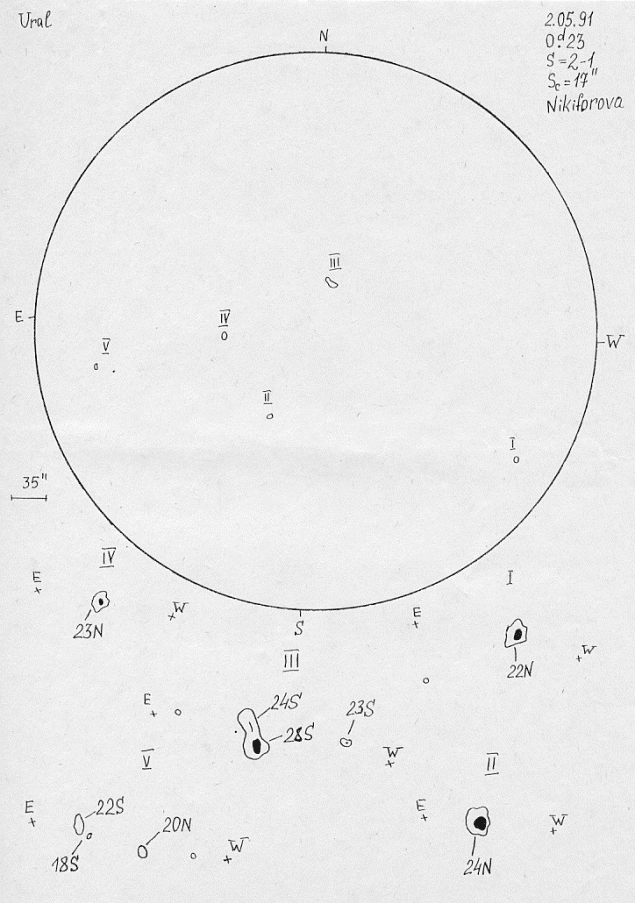 Ural
2.05.91
0.d23
S=2-1
Sc=17"
Nikiforova
N
III
E
IV
W
V
II
I
35"
IV
I
E
W
E
S
23N
W
III
22N
24S
23S
E
28S
W
V
II
E
22S
20N
E
W
W
18S
24N